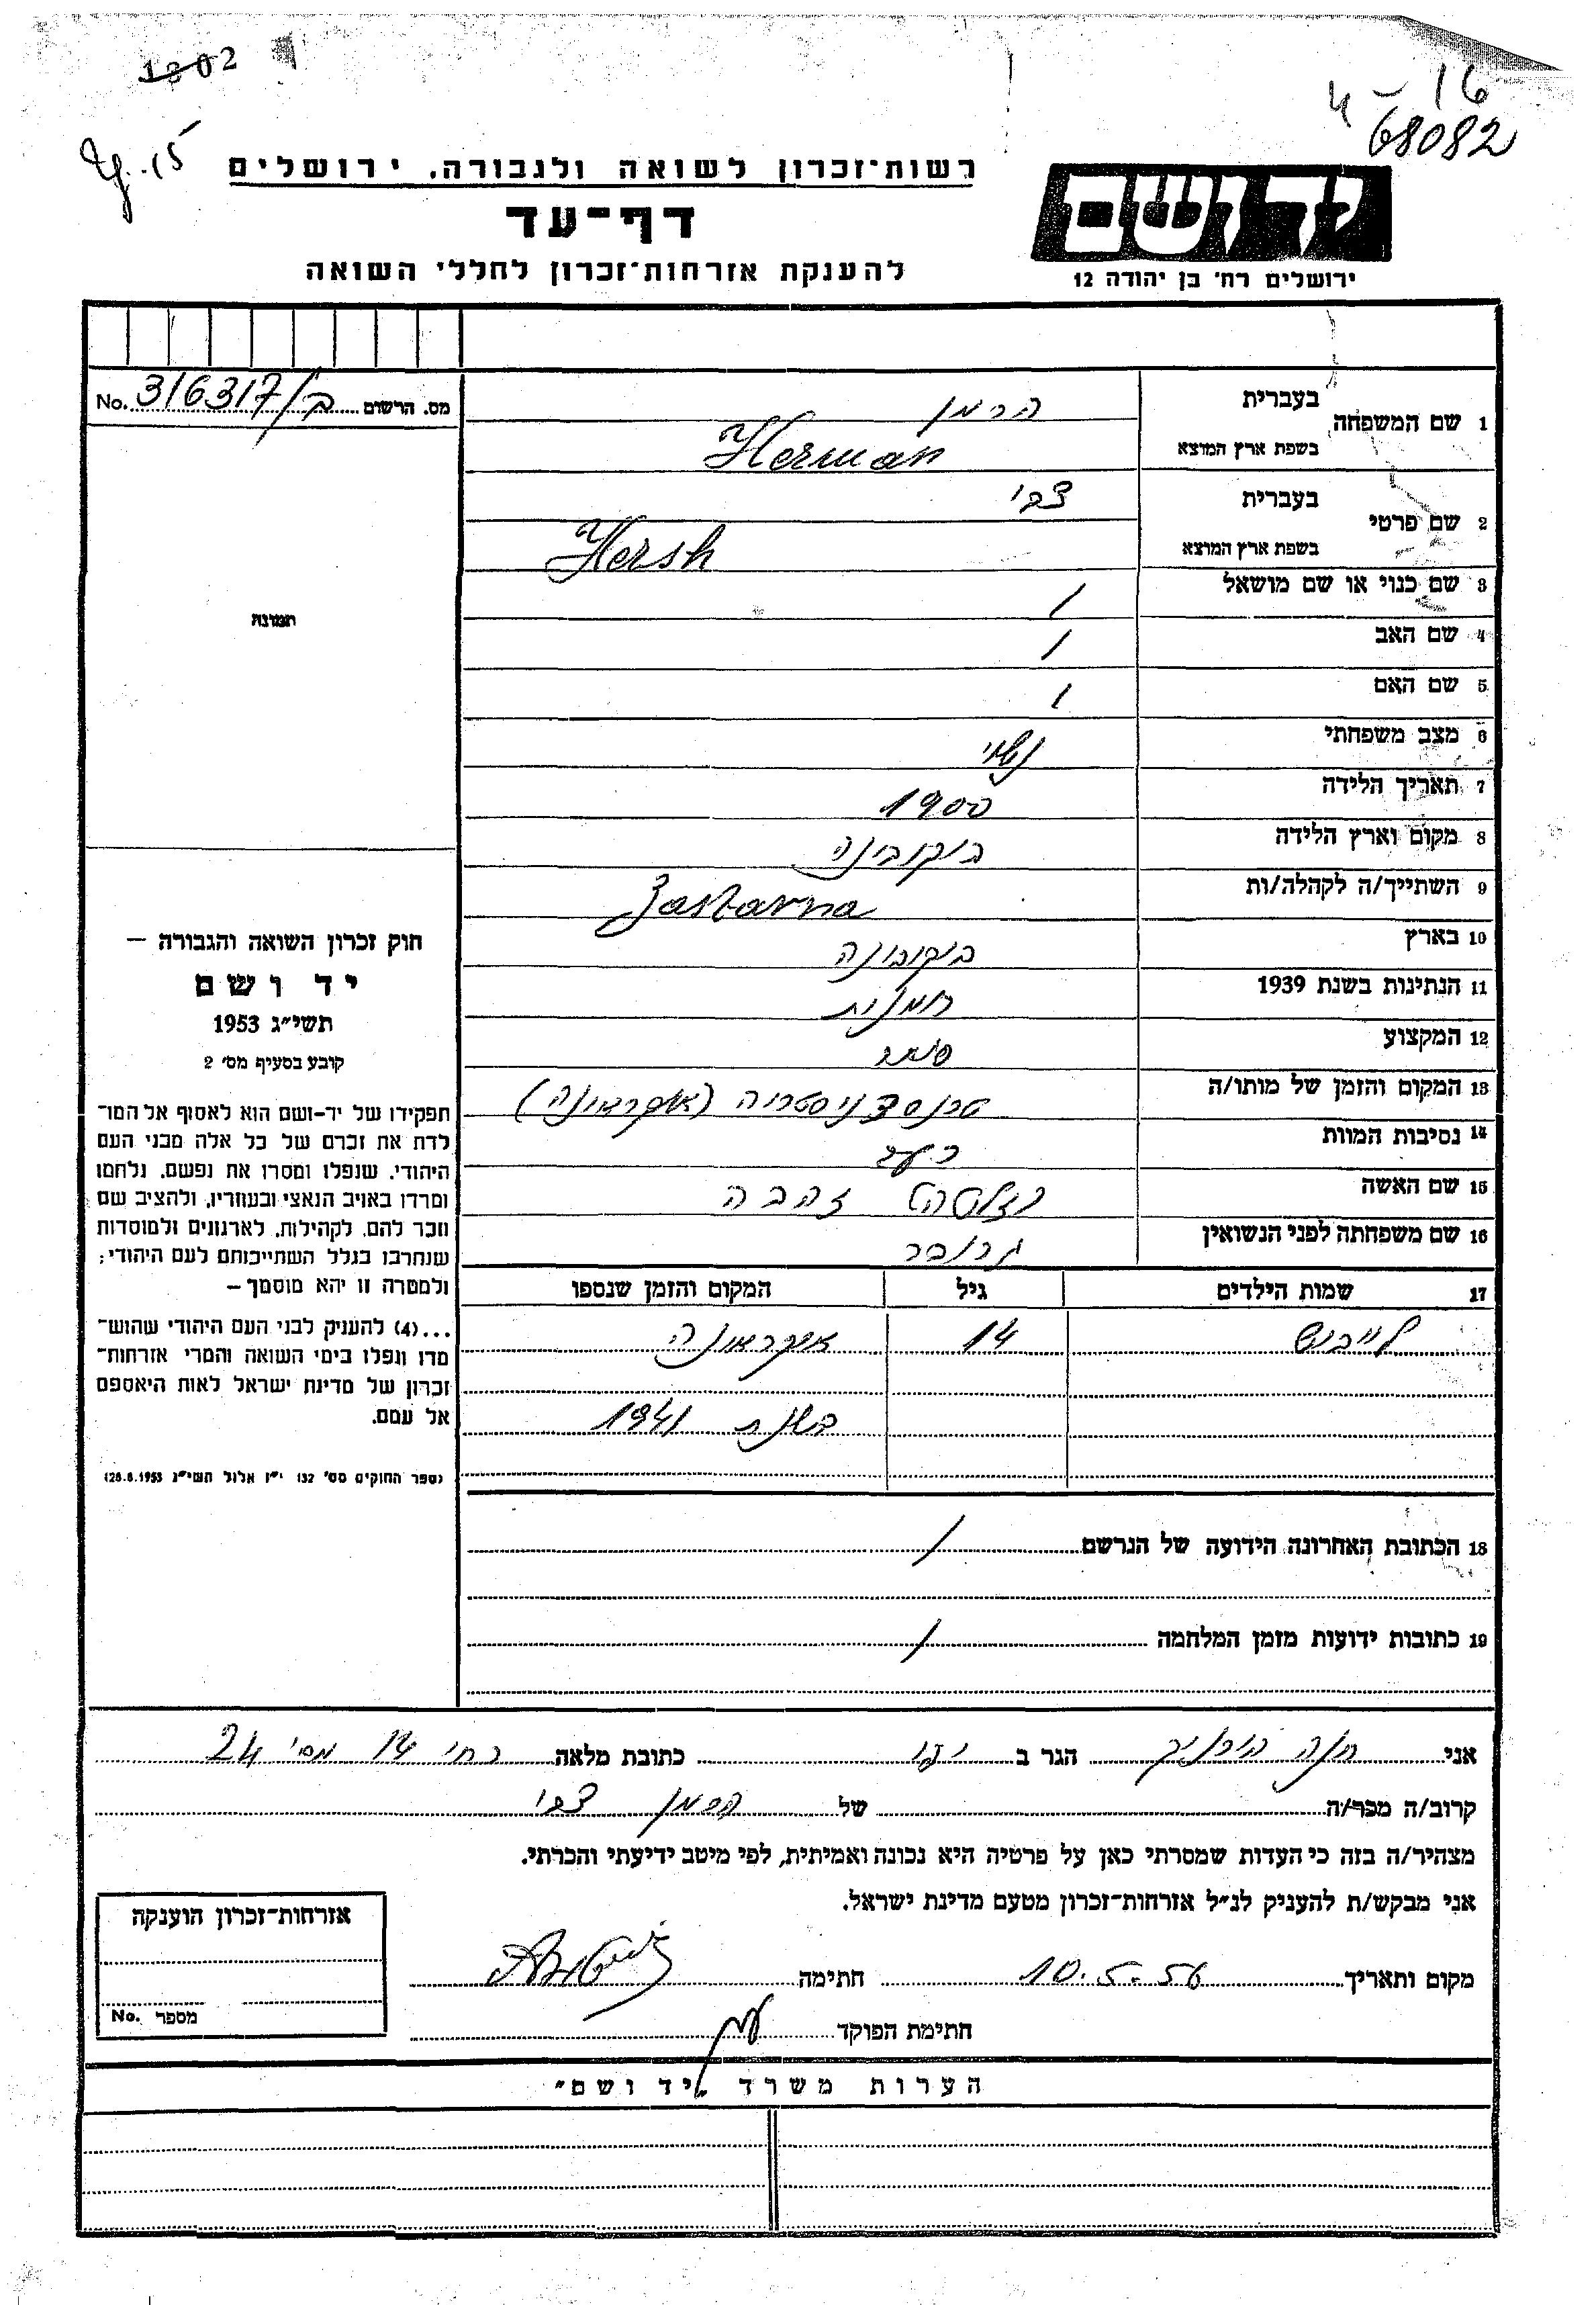 1302
4 - 16
68082
15
רשות־זכרון לשואה ולגבורה, ירושלים
דף־עד
להענקת אזרחות־זכרון לחללי השואה
יד ושם
ירושלים רח' בן יהודה 12
מס. הרשום ב/316317 No.
תמונה
חוק זכרון השואה והגבורה —
יד ושם
תשי״ג 1953
קובע בסעיף מס' 2
תפקידו של יד-ושם הוא לאסוף אל המו־
לדת את זכרם של כל אלה מבני העם
היהודי, שנפלו ומסרו את נפשם, נלחמו
ומרדו באויב הנאצי ובעוזריו, ולהציב שם
וזכר להם, לקהילות, לארגונים ולמוסדות
שנחרבו בגלל השתייכותם לעם היהודי;
ולמטרה זו יהא מוסמך —
...(4) להעניק לבני העם היהודי שהוש־
מדו ונפלו בימי השואה והמרי אזרחות־
זכרון של מדינת ישראל לאות היאספם
אל עמם.
(ספר החוקים מס' 132 י״ז אלול תשי״ג 28.8.1953)
1 שם המשפחה בעברית הרמן
בשפת ארץ המוצא Herman
2 שם פרטי בעברית צבי
בשפת ארץ המוצא Hersh
3 שם כנוי או שם מושאל /
4 שם האב /
5 שם האם /
6 מצב משפחתי נשוי
7 תאריך הלידה 1900
8 מקום וארץ הלידה בוקובינה
9 השתייך/ה לקהלה/ות Zastavna
10 בארץ בוקובינה
11 הנתינות בשנת 1939 רומנית
12 המקצוע סוחר
13 המקום והזמן של מותו/ה טרנסדניסטריה (אוקראינה)
14 נסיבות המוות רעב
15 שם האשה זהבה
16 שם משפחתה לפני הנשואין גרובר
17 שמות הילדים גיל המקום והזמן שנספו
לייבוש 14 אוקראינה
בשנת 1941
18 הכתובת האחרונה הידועה של הנרשם /
19 כתובות ידועות מזמן המלחמה /
אני חנה הגר ב כתובת מלאה רח' 14 מס' 24
קרוב/ה מכר/ה של הרמן צבי
מצהיר/ה בזה כי העדות שמסרתי כאן על פרטיה היא נכונה ואמיתית, לפי מיטב ידיעתי והכרתי.
אני מבקש/ת להעניק לנ״ל אזרחות־זכרון מטעם מדינת ישראל.
מקום ותאריך 10.5.56 חתימה
חתימת הפוקד
אזרחות־זכרון הוענקה
מספר No.
הערות משרד „יד ושם״